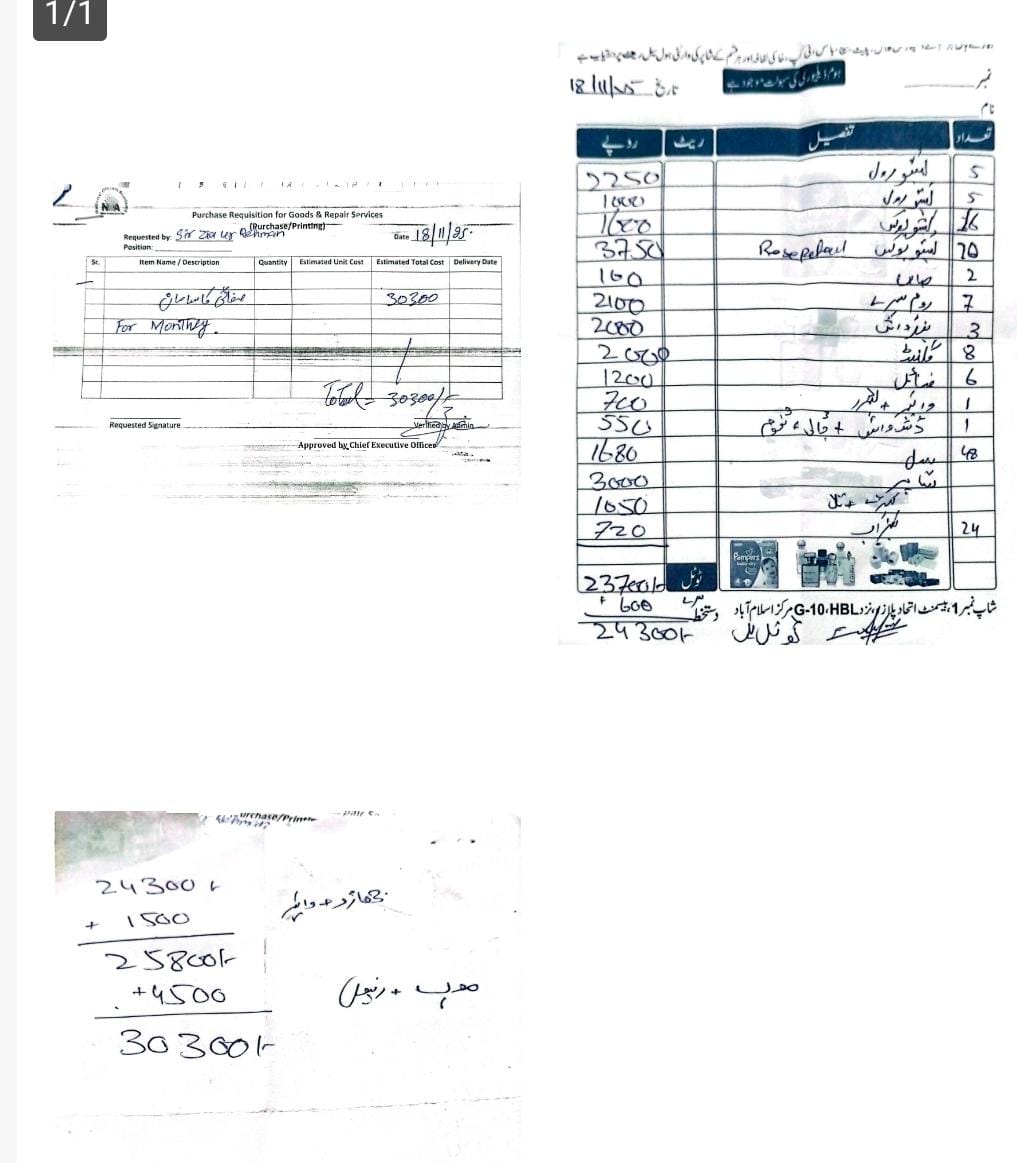 1/1
Purchase Requisition for Goods & Repair Services
(Purchase/Printing)
Requested by: Sir Zia ur Rehman
Date 18/11/25
Position:
Sr. Item Name / Description Quantity Estimated Unit Cost Estimated Total Cost Delivery Date
صفائی کا سامان 30300
For Monthly.
Total = 30300/-
Requested Signature Verified by Admin
Approved by Chief Executive Officer
ہوم ڈیلیوری کی سہولت موجود ہے
نمبر
تاریخ 18/11/25
نام
تعداد تفصیل ریٹ روپے
5 ٹشو رول 2250
5 ٹشو رول 1000
16 ٹشو بکس 1600
ٹشو بکس Rosepetal 3750
2 صابن 160
7 روم سپرے 2100
3 2000
8 2000
6 فنائل 1200
1 وائپر + 700
1 ڈش واش + جالی + فوم 550
48 1680
شاپر 3000
1050
24 720
Pampers
ٹوٹل 23700/-
+ 600
دستخط
شاپ نمبر 1، بیسمنٹ اتحاد پلازہ، نزد HBL، G-10 مرکز اسلام آباد
ٹوٹل بل 24300/-
24300/-
+ 1500 جھاڑو + وائپر
25800/-
+4500 موپ +
30300/-